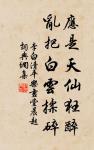 應是天仙狂醉
亂把白雲揉碎
李白清平樂畫堂晨起
詞典網集